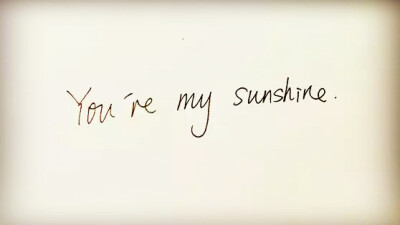 You're my sunshine.